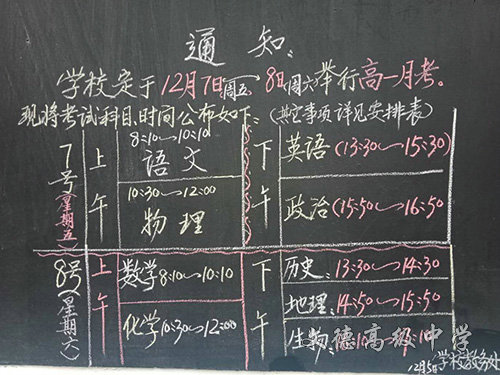 通知:
学校定于12月7日(周五)8日(周六)举行高一月考。
现将考试科目、时间公布如下:(其它事项详见安排表)
7号(星期五)
上午
8:10~10:10
语文
10:30~12:00
物理
下午
英语(13:30~15:30)
政治(15:50~16:50
8号(星期六)
上午
数学8:10~10:10
化学10:30~12:00
下午
历史:13:30~14:30
地理:14:50~15:50
生物
德高级中学
学校教务处
12月5日